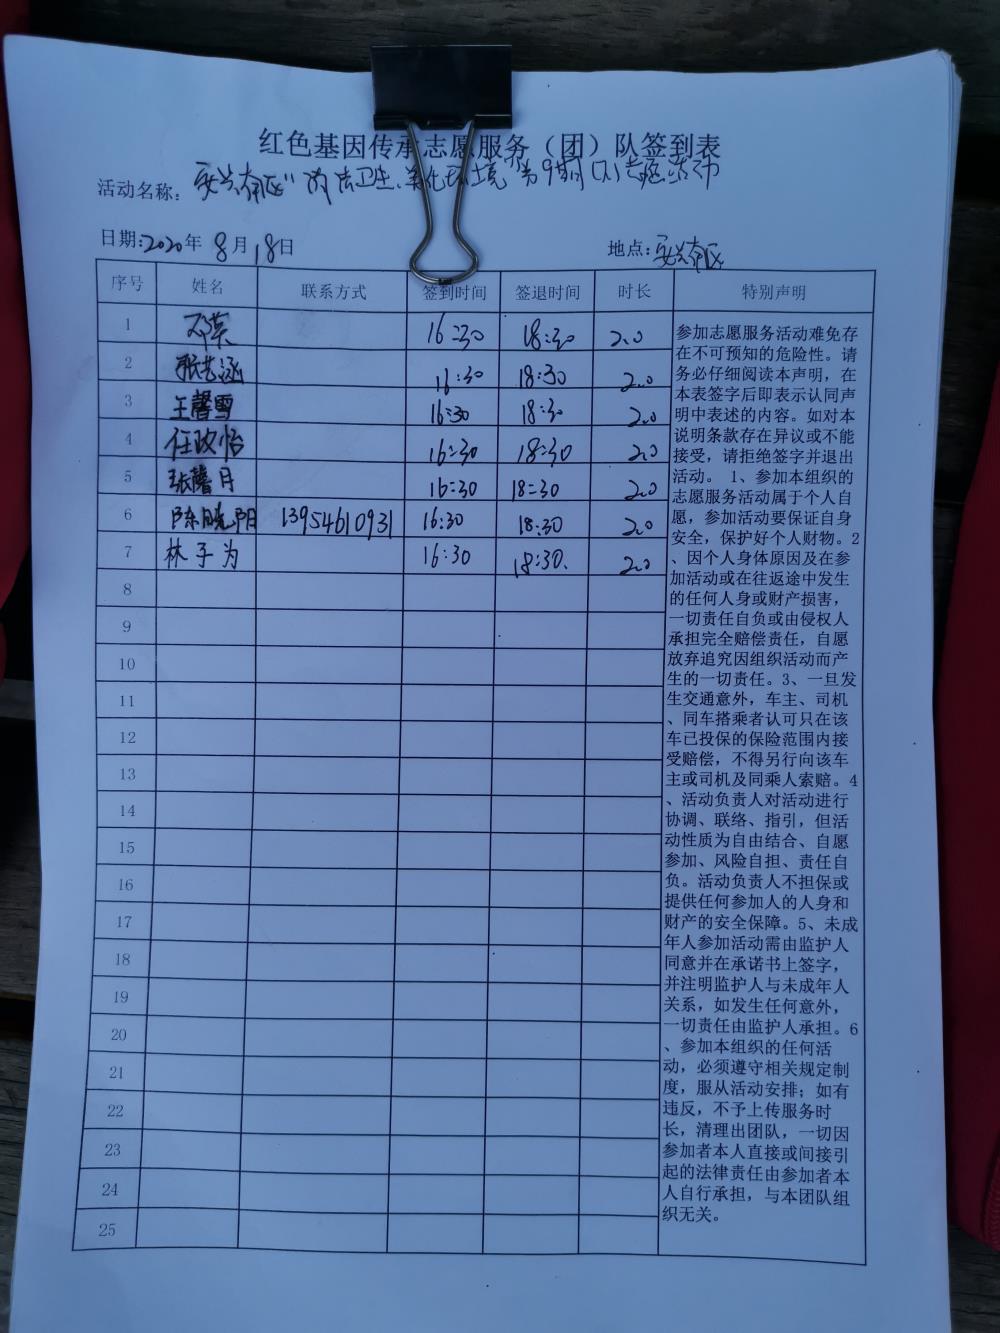 红色基因传承志愿服务（团）队签到表
活动名称： 安兴南区“清洁卫生、美化环境”第9期 志愿活动
日期:2020年 8月18日 地点: 安兴南区
序号 姓名 联系方式 签到时间 签退时间 时长 特别声明
1 16:30 18:30 2.0
2 张艺涵 16:30 18:30 2.0
3 王馨雪 16:30 18:30 2.0
4 任政怡 16:30 18:30 2.0
5 张馨月 16:30 18:30 2.0
6 陈晓阳 13954610931 16:30 18:30 2.0
7 林子为 16:30 18:30. 2.0
8
9
10
11
12
13
14
15
16
17
18
19
20
21
22
23
24
25
参加志愿服务活动难免存
在不可预知的危险性。请
务必仔细阅读本声明，在
本表签字后即表示认同声
明中表述的内容。如对本
说明条款存在异议或不能
接受，请拒绝签字并退出
活动。 1、参加本组织的
志愿服务活动属于个人自
愿，参加活动要保证自身
安全，保护好个人财物。2
、因个人身体原因及在参
加活动或在往返途中发生
的任何人身或财产损害，
一切责任自负或由侵权人
承担完全赔偿责任，自愿
放弃追究因组织活动而产
生的一切责任。3、一旦发
生交通意外，车主、司机
、同车搭乘者认可只在该
车已投保的保险范围内接
受赔偿，不得另行向该车
主或司机及同乘人索赔。4
、活动负责人对活动进行
协调、联络、指引，但活
动性质为自由结合、自愿
参加、风险自担、责任自
负。活动负责人不担保或
提供任何参加人的人身和
财产的安全保障。5、未成
年人参加活动需由监护人
同意并在承诺书上签字，
并注明监护人与未成年人
关系，如发生任何意外，
一切责任由监护人承担。6
、参加本组织的任何活
动，必须遵守相关规定制
度，服从活动安排；如有
违反，不予上传服务时
长，清理出团队，一切因
参加者本人直接或间接引
起的法律责任由参加者本
人自行承担，与本团队组
织无关。